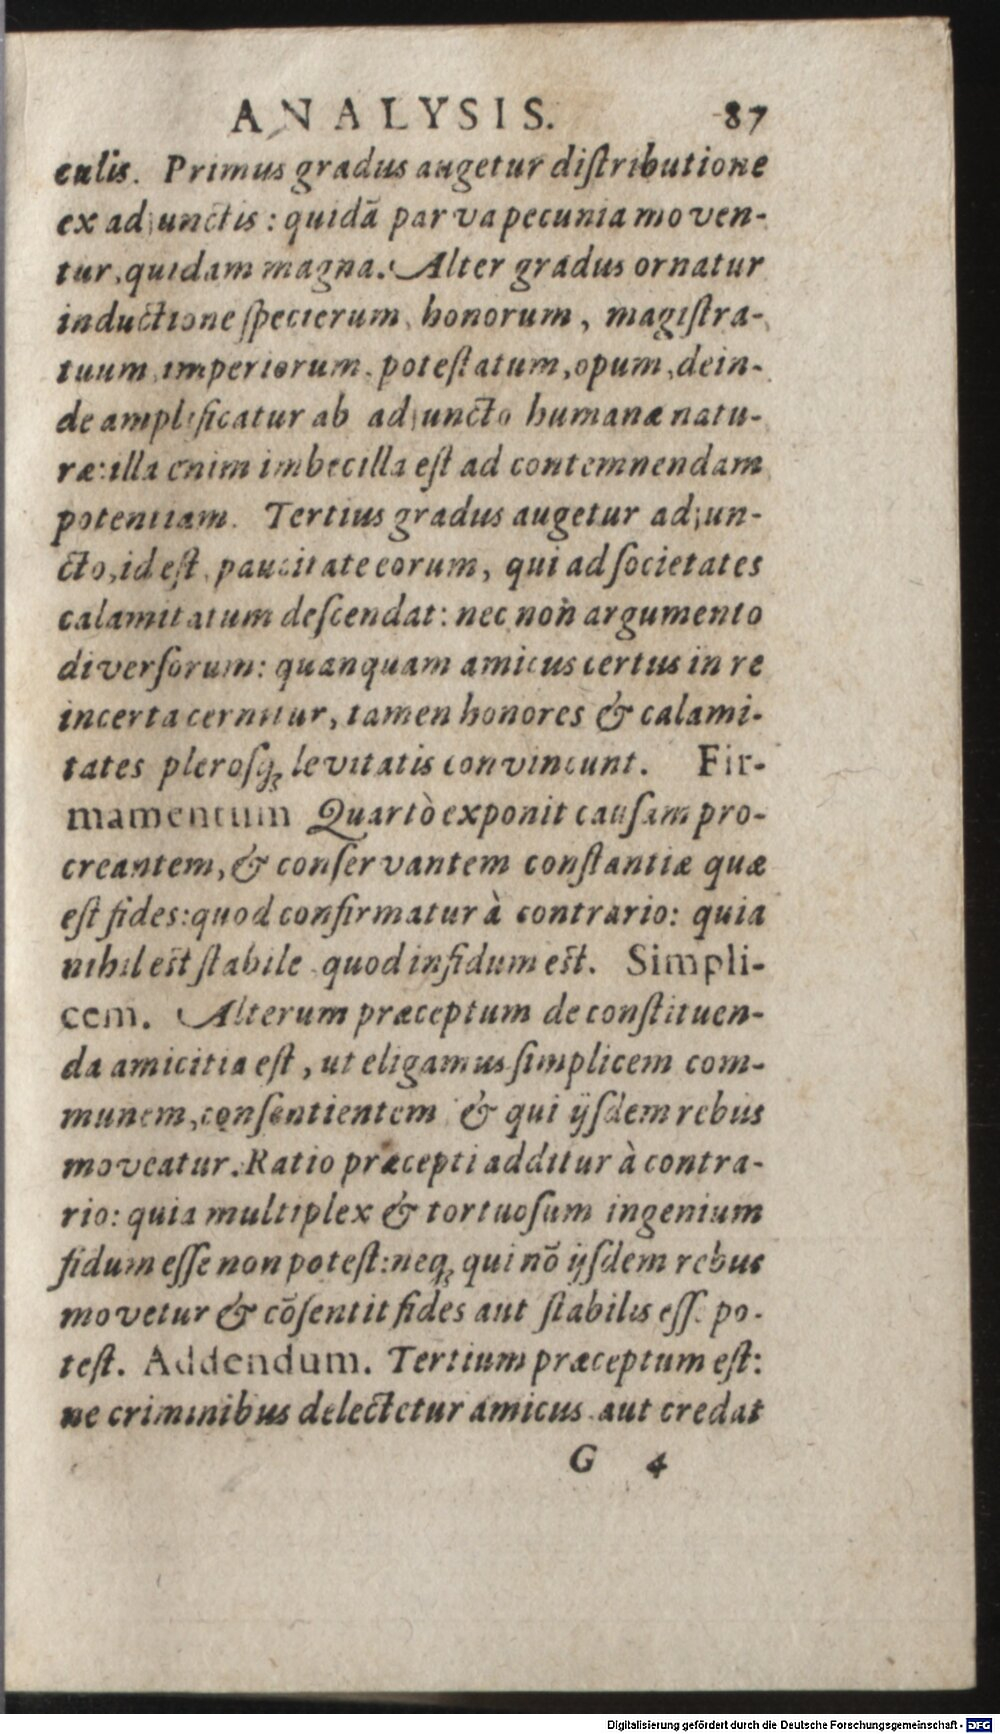 ANALYSIS. 87
culis. Primus gradus augetur distributione
ex adjunctis: quidã parva pecunia moven-
tur, quidam magna. Alter gradus ornatur
inductione specierum, honorum, magistra-
tuum, imperiorum, potestatum, opum, dein-
de amplificatur ab adjuncto humanæ natu-
ræ: illa enim imbecilla est ad contemnendam
potentiam. Tertius gradus augetur adjun-
cto, id est, paucitate eorum, qui ad societates
calamitatum descendat: nec non argumento
diversorum: quanquam amicus certus in re
incerta cernitur, tamen honores & calami-
tates plerosq; levitatis convincunt. Fir-
mamentum Quartò exponit causam pro-
creantem, & conservantem constantiæ quæ
est fides: quod confirmatur à contrario: quia
nihil est stabile quod infidum est. Simpli-
cem. Alterum præceptum de constituen-
da amicitia est, ut eligamus simplicem com-
munem, consentientem & qui ijsdem rebus
moveatur. Ratio præcepti additur à contra-
rio: quia multiplex & tortuosum ingenium
fidum esse non potest: neq; qui nõ ijsdem rebus
movetur & cõsentit fides aut stabilis esse po-
test. Addendum. Tertium præceptum est:
ne criminibus delectetur amicus aut credat
G 4
Digitalisierung gefördert durch die Deutsche Forschungsgemeinschaft - DFG